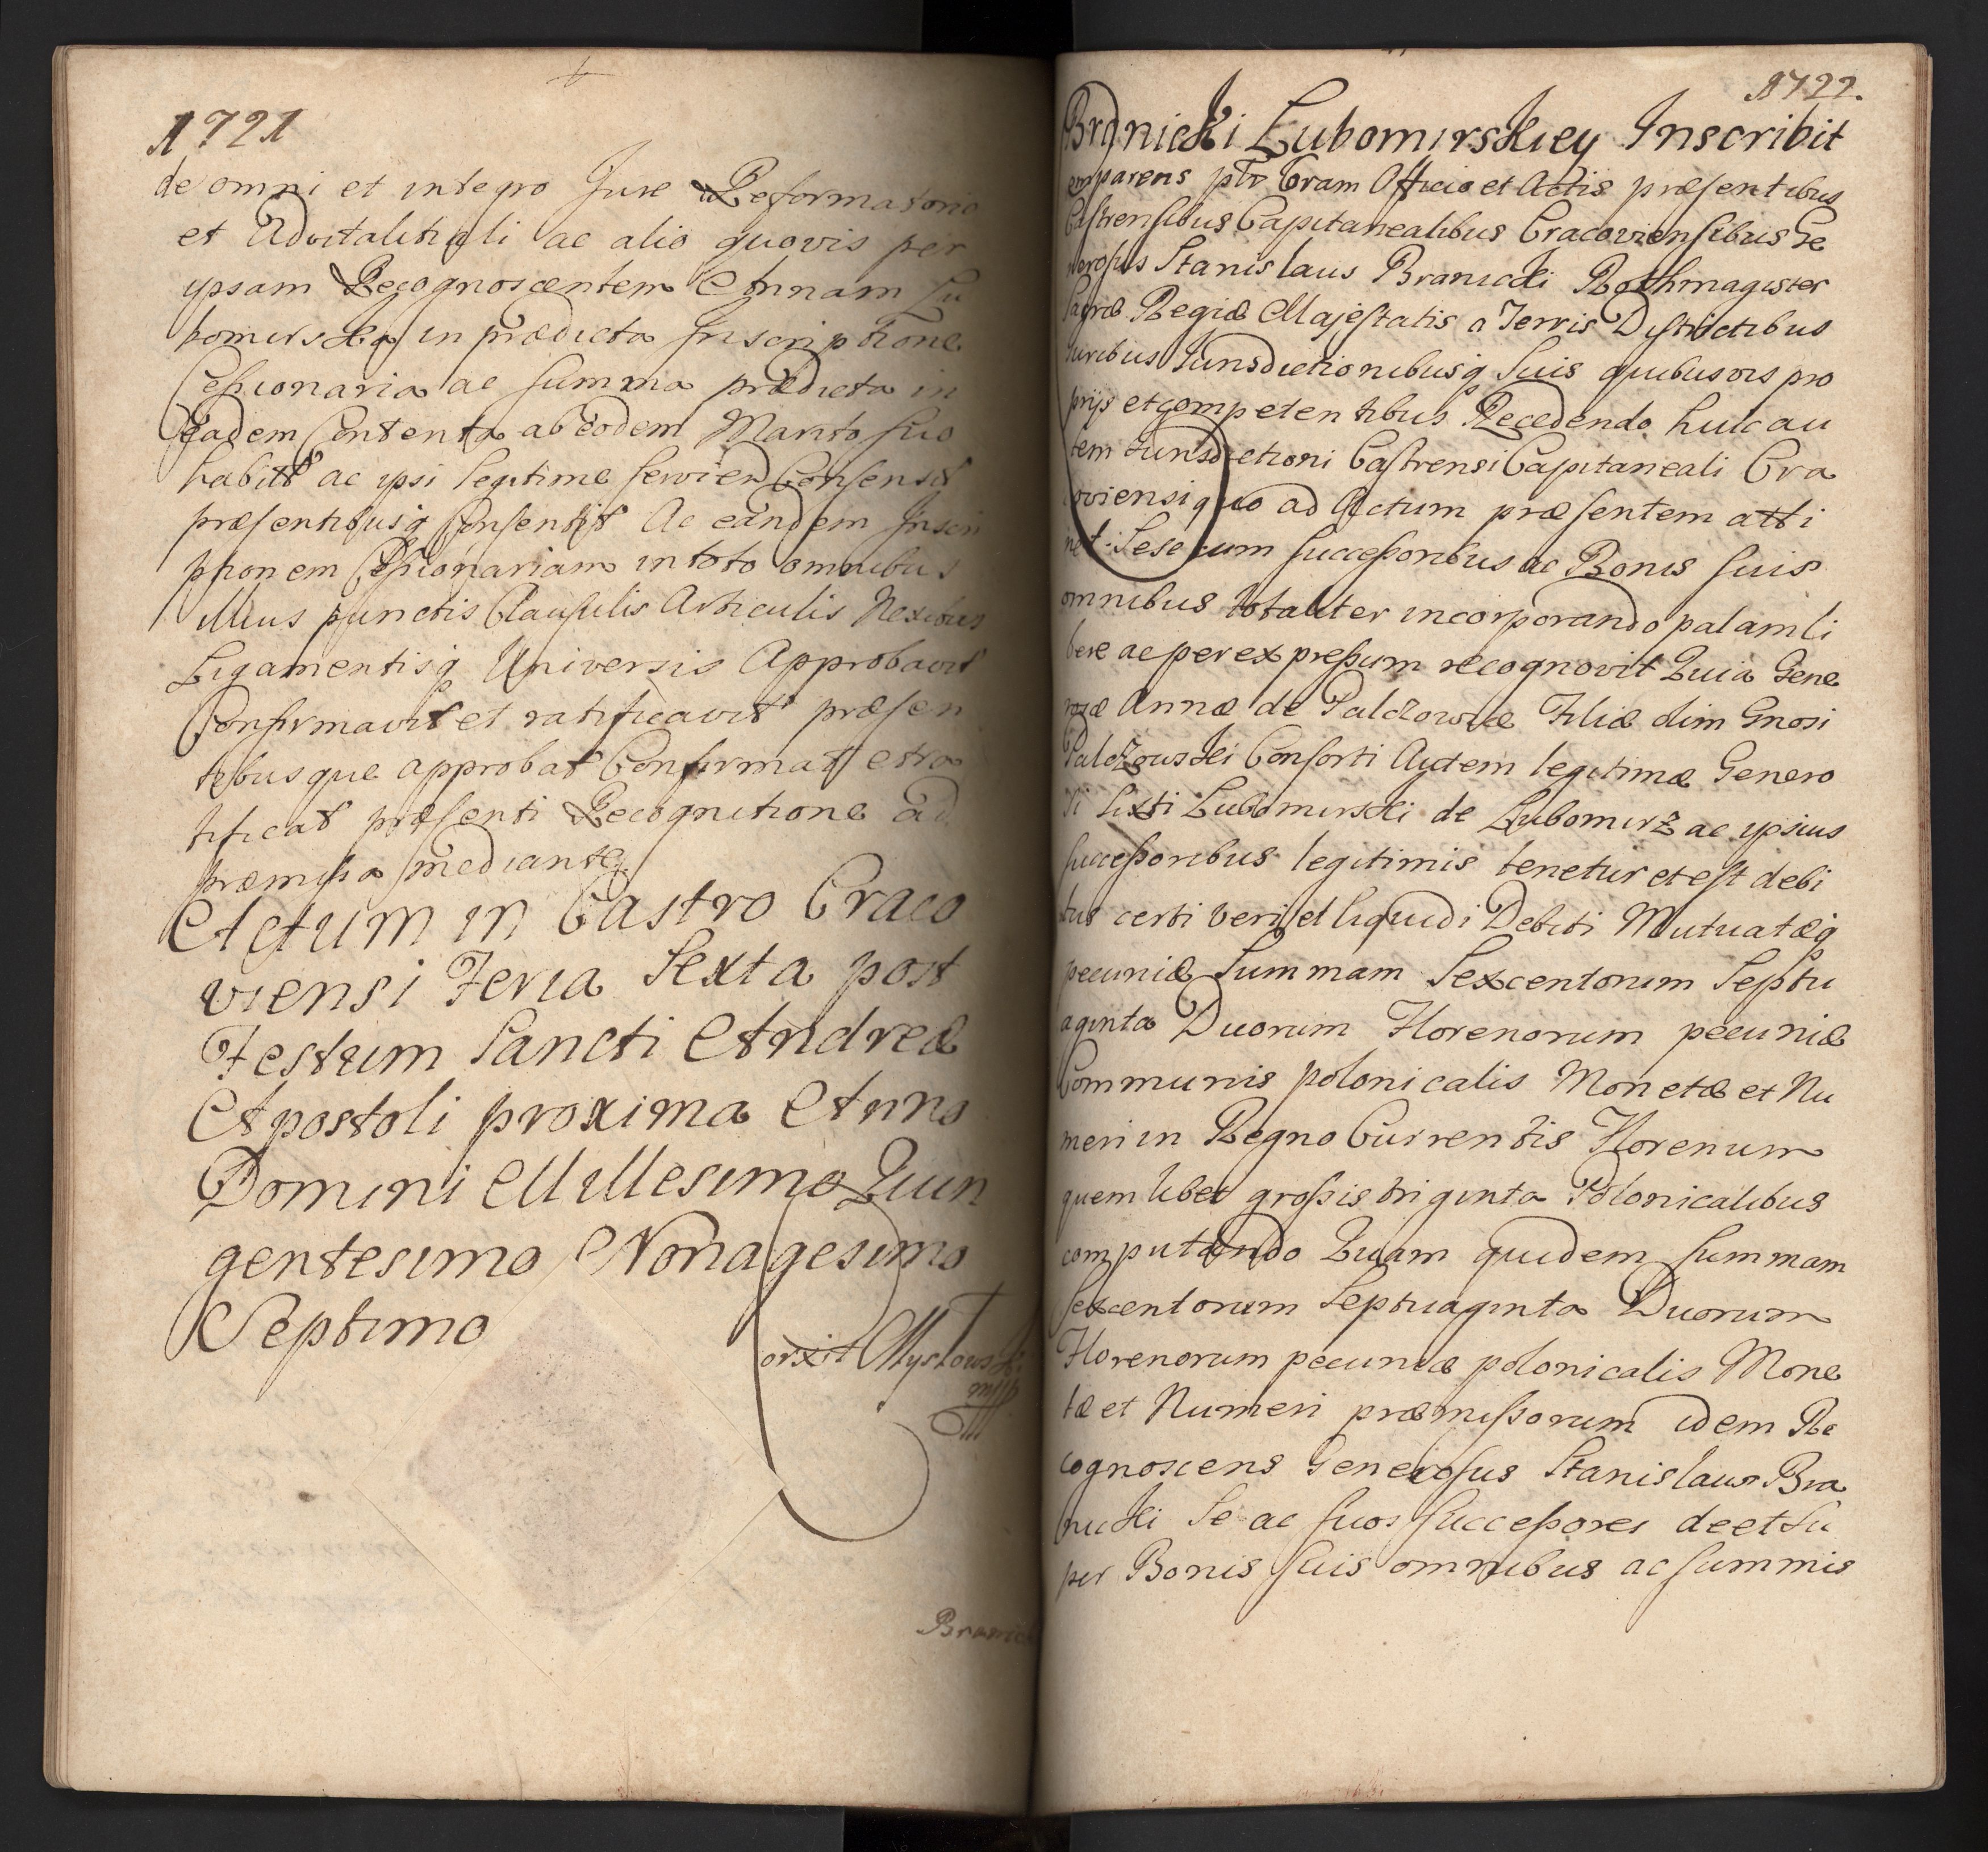 1721
de omni et integro Jure Reformatorio
et Advitalitiali ac alio quovis per
ypsam Recognoscentem Annam Lu
bomirska in prædicta Inscriptione
Cessionaria ac summa prædicta in
eadem Contenta ab eodem Marito suo
habitt ac ypsi legitime servien Consensit
præsentibusq Consentit Ac eandem Inscri
ptionem Cessionariam in toto omnibus
illius punctis Clausulis Articulis Nexibus
Ligamentisq Universis Approbavit
Confirmavit et ratificavit præsen
tibusque approbat Confirmat et ra
tificat præsenti Recognitione ad
præmissa mediante
Actum in Castro Craco
viensi Feria Sexta post
Festum Sancti Andreæ
Apostoli proxima Anno
Domini Millesimo Quin
gentesimo Nonagesimo
Septimo
Branic
1722.
Branicki Lubomirskiey Inscribit
omparens ptr Coram Officio et Actis præsentibus
Castrensibus Capitanealibus Cracoviensibus Ge
nerosus Stanislaus Branicki Rothmagister
Sacræ Regiæ Majestatis a Terris Districtibus
Juribus Jurisdictionibusq Suis quibusvis pro
prijs et competentibus Recedendo huic au
tem Jurisdictioni Castrensi Capitaneali Cra
coviensi quo ad Actum præsentem atti
net Sese cum successoribus ac Bonis suis
omnibus totaliter incorporando palam li
bere ac per expressum recognovit Quia Gene
rosæ Annæ de Palczowice Filiæ olim Gnosi
Palczowski Consorti Autem legitimæ Genero
si Sixti Lubomirski de Lubomirz ac ypsius
successoribus legitimis tenetur et est debi
tus certi veri et liquidi Debiti Mutuatæq
pecuniæ Summam Sexcentorum Septu
aginta Duorum Florenorum pecuniæ
Communis polonicalis Monetæ et Nu
meri in Regno Currentis Florenum
quemlibet grossis triginta Polonicalibus
computando Quam quidem summam
sexcentorum Septuaginta Duorum
Florenorum pecuniæ polonicalis Mone
tæ et Numeri præmissorum idem Re
cognoscens Generosus Stanislaus Bra
nicki Se ac suos successores de et su
per Bonis suis omnibus ac summis